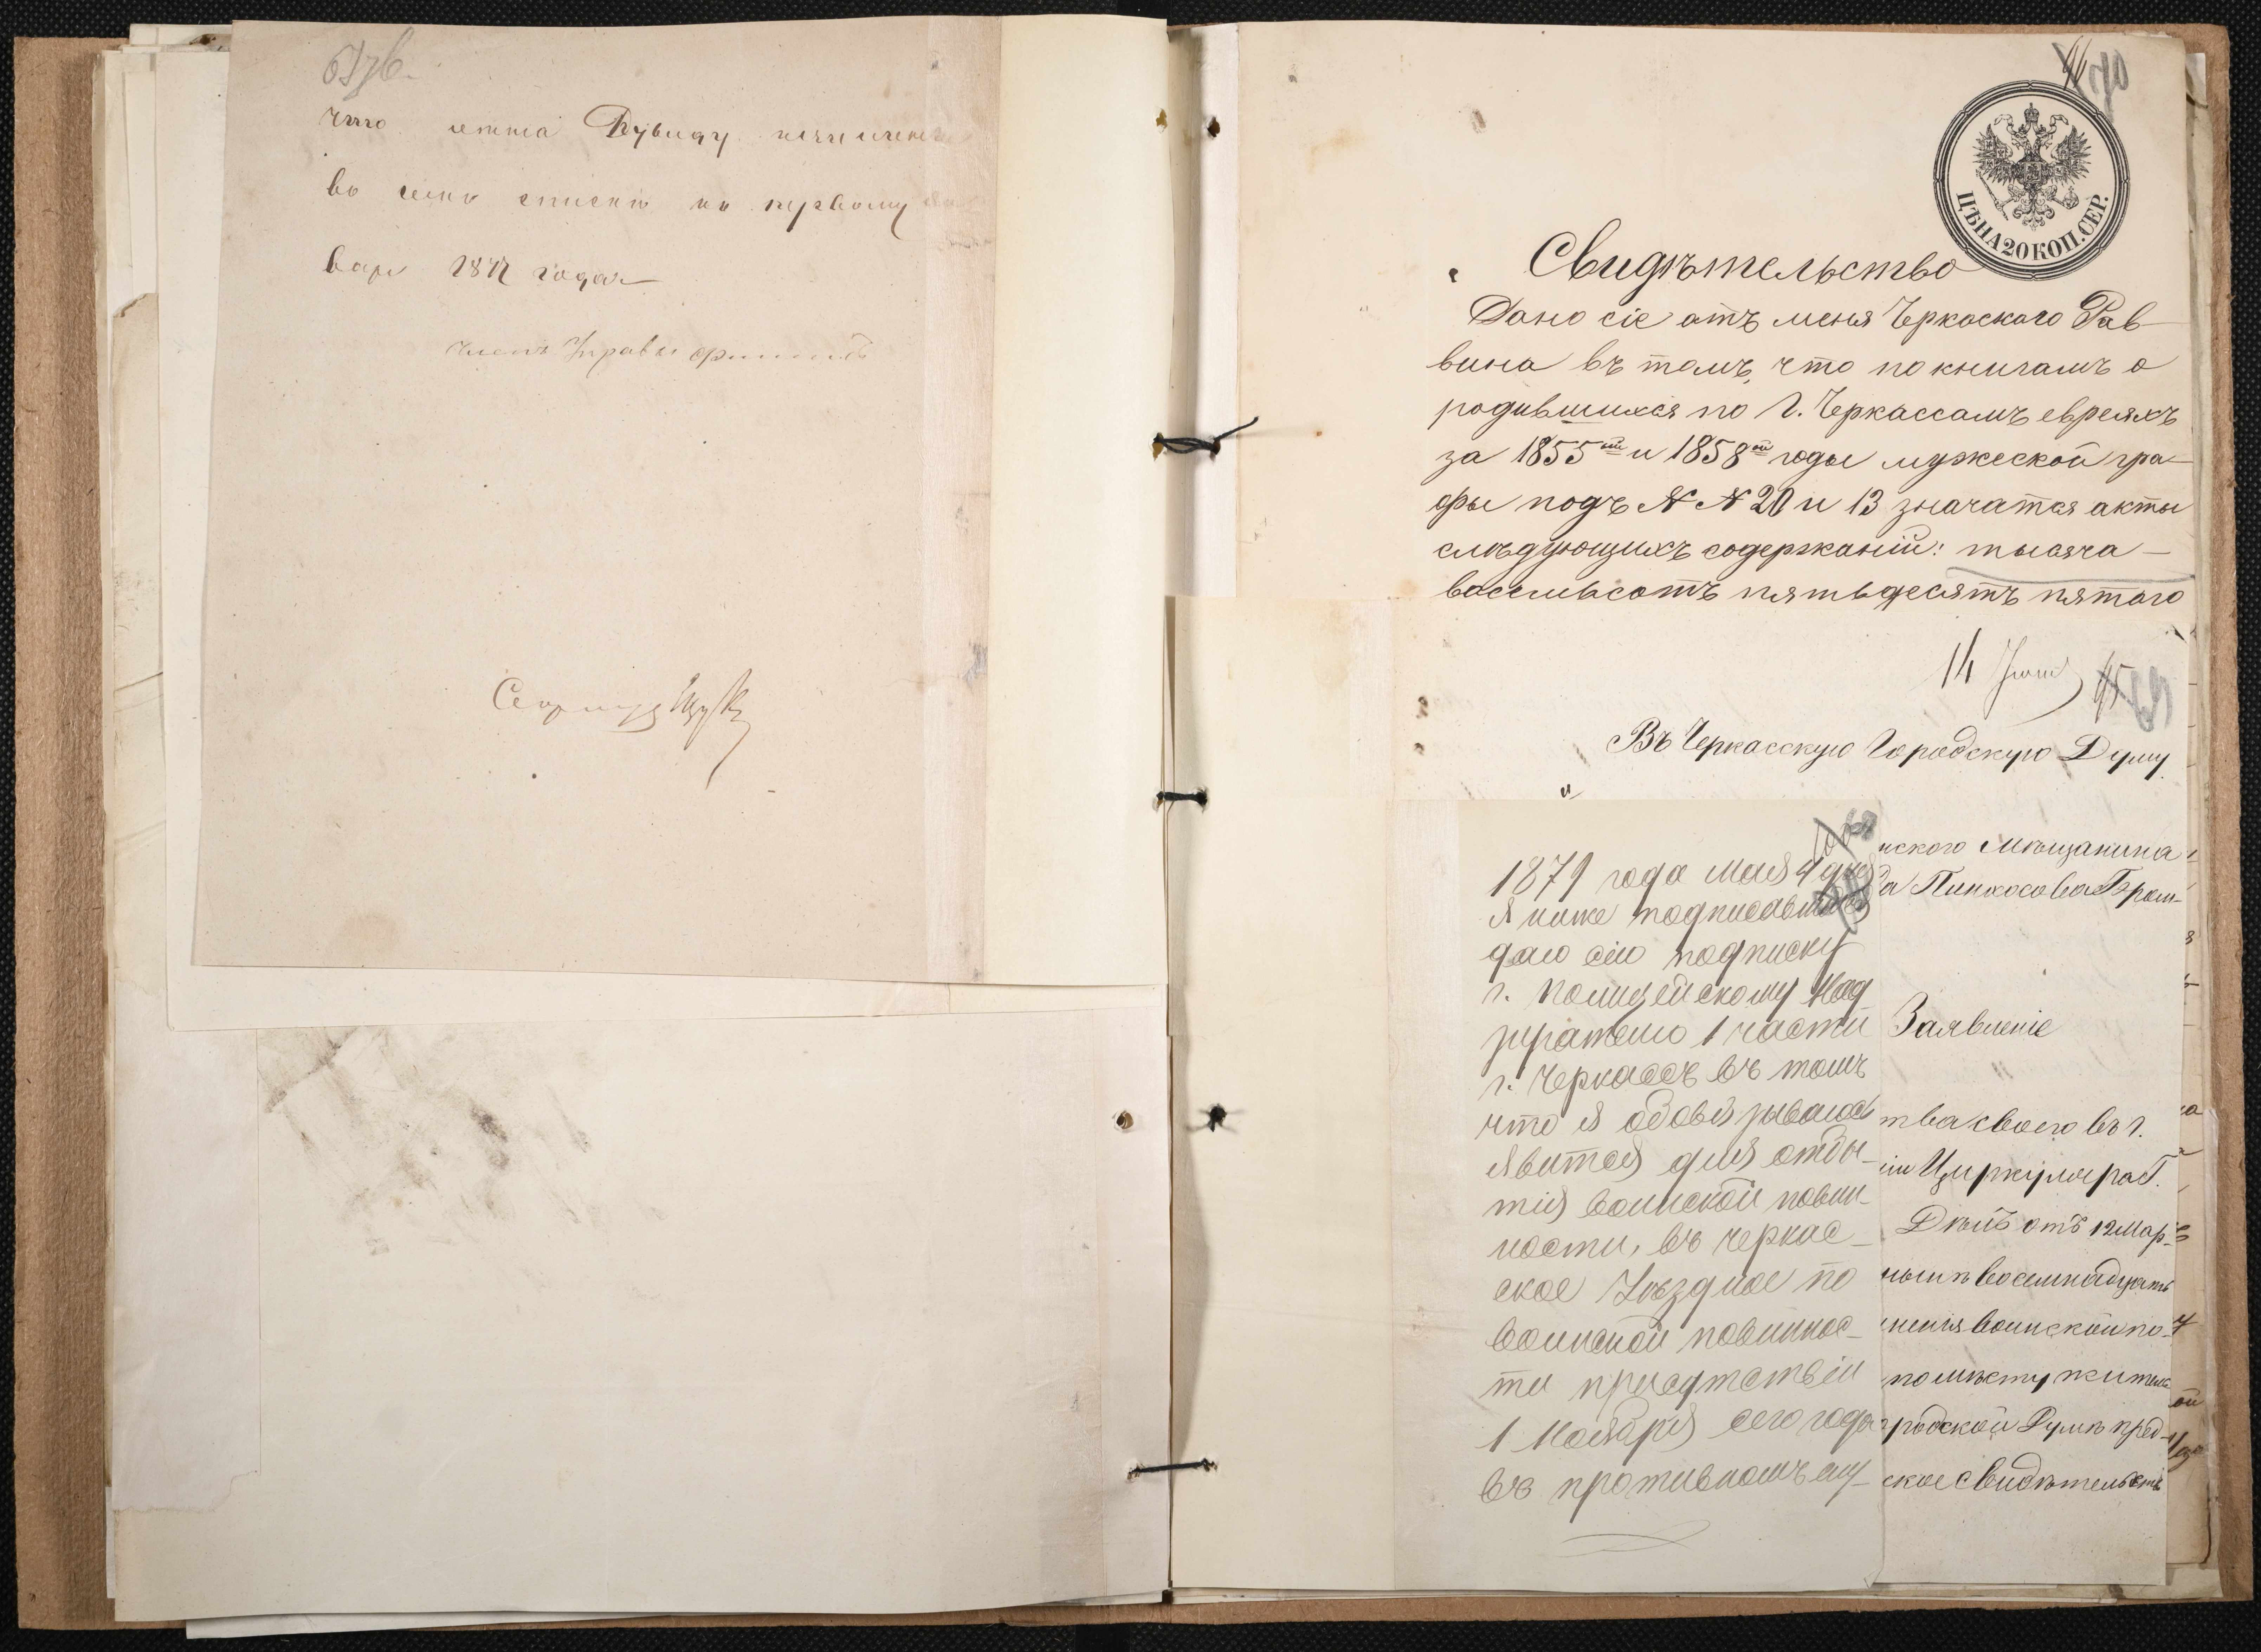 67об.
что лета Рувиду
во семъ списки къ первому
варя 1877 года
Членъ Управы
70
ЦѢНА 20 КОП. СЕР.
Свидѣтельство
Дано сіе отъ меня Черкаскаго Рав-
вина въ томъ, что по книгамъ о
родившихся по г. Черкассамъ евреяхъ
за 1855ый и 1858ой годы мужеской гра-
фы подъ N N 20 и 13 значатся акты
слѣдующихъ содержаній: тысяча-
восемьсотъ пятьдесятъ пятаго
14 Іюня
69
Въ Черкасскую Городскую Думу
нскаго Мѣщанина
а Пинхосова Гром-
Заявленіе
тва своего въ г.
іи Циркуляра Г.
Дѣлъ отъ 12 Мар-
ымъ восемнадцать
ненія воинской по-
по мѣсту житель
родской Думѣ пред-
ское свидѣтельств
68
1879 года мая 4 дня
я ниже подписавшійся
даю сію подписку
г. полицейскому Над-
зирателю 1 части
г. Черкассъ въ томъ
что я обовязываюсь
явится для отбы-
тія воинской повин-
ности, въ черкас-
ское Уѣздное по
воинской повиннос-
ти присутствіи
1 Ноября сего года
въ противномъ слу-